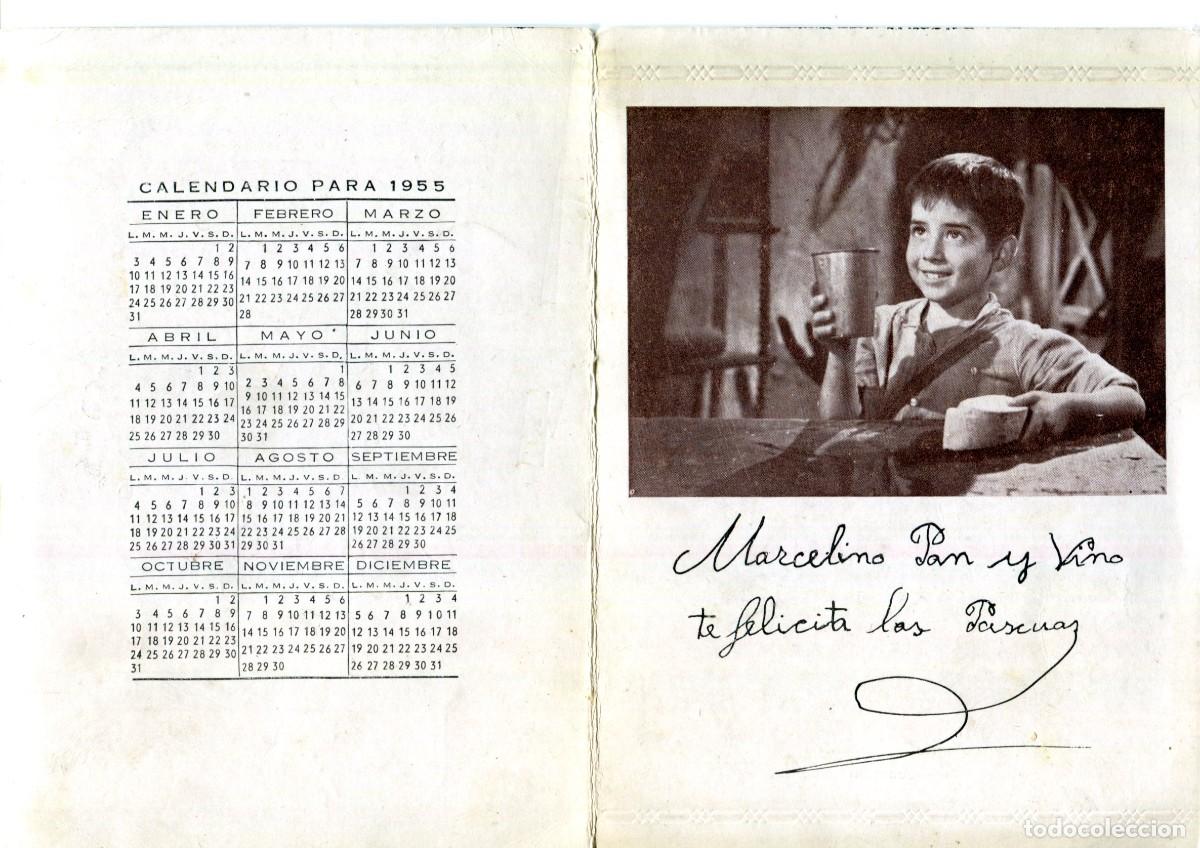 CALENDARIO PARA 1955
ENERO FEBRERO MARZO
L. M. M. J. V. S. D. L. M. M. J. V. S. D. L. M. M. J. V. S. D.
1 2 1 2 3 4 5 6 1 2 3 4 5 6
3 4 5 6 7 8 9 7 8 9 10 11 12 13 7 8 9 10 11 12 13
10 11 12 13 14 15 16 14 15 16 17 18 19 20 14 15 16 17 18 19 20
17 18 19 20 21 22 23 21 22 23 24 25 26 27 21 22 23 24 25 26 27
24 25 26 27 28 29 30 28 28 29 30 31
31
ABRIL MAYO JUNIO
L. M. M. J. V. S. D. L. M. M. J. V. S. D. L. M. M. J. V. S. D.
1 2 3 1 1 2 3 4 5
4 5 6 7 8 9 10 2 3 4 5 6 7 8 6 7 8 9 10 11 12
11 12 13 14 15 16 17 9 10 11 12 13 14 15 13 14 15 16 17 18 19
18 19 20 21 22 23 24 16 17 18 19 20 21 22 20 21 22 23 24 25 26
25 26 27 28 29 30 23 24 25 26 27 28 29 27 28 29 30
30 31
JULIO AGOSTO SEPTIEMBRE
L. M. M. J. V. S. D. L. M. M. J. V. S. D. L. M. M. J. V. S. D.
1 2 3 1 2 3 4 5 6 7 1 2 3 4
4 5 6 7 8 9 10 8 9 10 11 12 13 14 5 6 7 8 9 10 11
11 12 13 14 15 16 17 15 16 17 18 19 20 21 12 13 14 15 16 17 18
18 19 20 21 22 23 24 22 23 24 25 26 27 28 19 20 21 22 23 24 25
25 26 27 28 29 30 31 29 30 31 26 27 28 29 30
OCTUBRE NOVIEMBRE DICIEMBRE
L. M. M. J. V. S. D. L. M. M. J. V. S. D. L. M. M. J. V. S. D.
1 2 1 2 3 4 5 6 1 2 3 4
3 4 5 6 7 8 9 7 8 9 10 11 12 13 5 6 7 8 9 10 11
10 11 12 13 14 15 16 14 15 16 17 18 19 20 12 13 14 15 16 17 18
17 18 19 20 21 22 23 21 22 23 24 25 26 27 19 20 21 22 23 24 25
24 25 26 27 28 29 30 28 29 30 26 27 28 29 30 31
31
Marcelino Pan y Vino
te felicita las Pascuas
todocoleccion